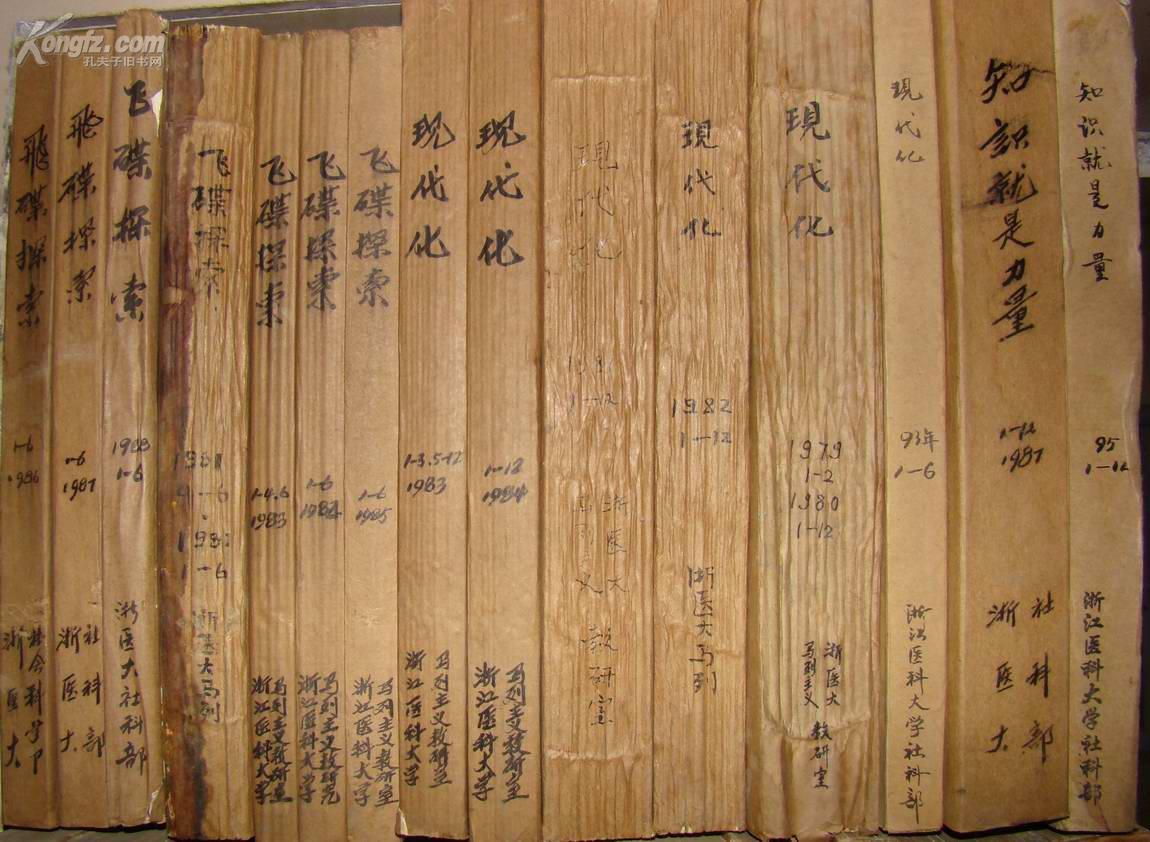 Kongfz.com
孔夫子旧书网
飛碟探索
1-6
1986
浙医大
社会科学部
飛碟探索
1-6
1987
浙医大
社科部
飞碟探索
1988
1-6
浙医大社科部
飞碟探索
1981
1-6
1-6
浙医大马列
飞碟探索
1-4.6
1983
浙江医科大学
马列主义教研室
飞碟探索
1-6
1984
浙江医科大学
马列主义教研室
飞碟探索
1-6
1985
浙江医科大学
马列主义教研室
现代化
1-3.5-12
1983
浙江医科大学
马列主义教研室
现代化
1-12
1984
浙江医科大学
马列主义教研室
現代化
1-12
浙医大
马列主义
教研室
現代化
1982
1-12
浙医大马列
現代化
1979
1-2
1980
1-12
浙医大
马列主义
教研室
現代化
93年
1-6
浙江医科大学社科部
知識就是力量
1-12
1987
浙医大
社科部
知识就是力量
95
1-12
浙江医科大学社科部